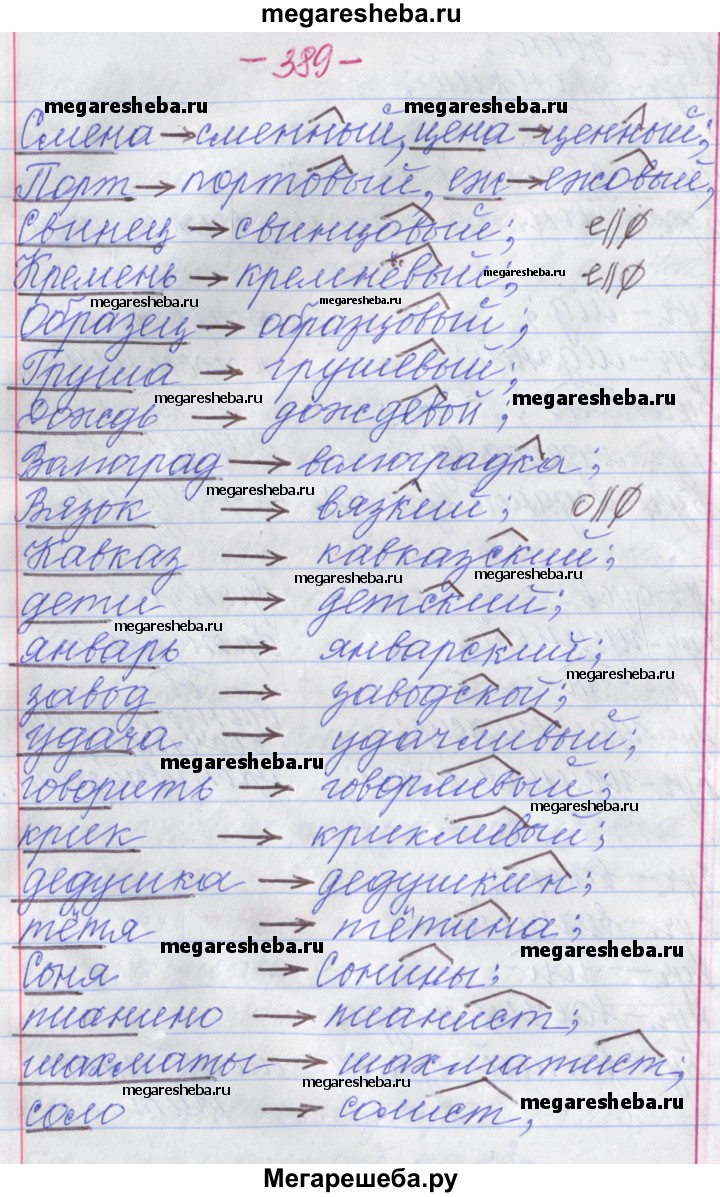 megaresheba.ru
- 389 -
megaresheba.ru megaresheba.ru
Смена → сменный, цена → ценный;
Порт → портовый, еж → ежовый,
Свинец → свинцовый; е//∅
Кремень → кремнёвый; megaresheba.ru е//∅
megaresheba.ru megaresheba.ru
Образец → образцовый;
Груша → грушевый;
megaresheba.ru megaresheba.ru
Дождь → дождевой;
Волгоград → волгоградка;
megaresheba.ru
Вязок → вязкий; о//∅
Кавказ → кавказский;
megaresheba.ru megaresheba.ru
дети → детский;
megaresheba.ru
январь → январский;
megaresheba.ru
завод → заводской;
удача → удачливый;
megaresheba.ru
говорить → говорливый;
megaresheba.ru
крик → крикливый;
дедушка → дедушкин;
тётя → тётина;
megaresheba.ru megaresheba.ru
Соня → Сонины;
пианино → пианист;
шахматы → шахматист;
megaresheba.ru megaresheba.ru
соло → солист, megaresheba.ru
Мегарешеба.ру